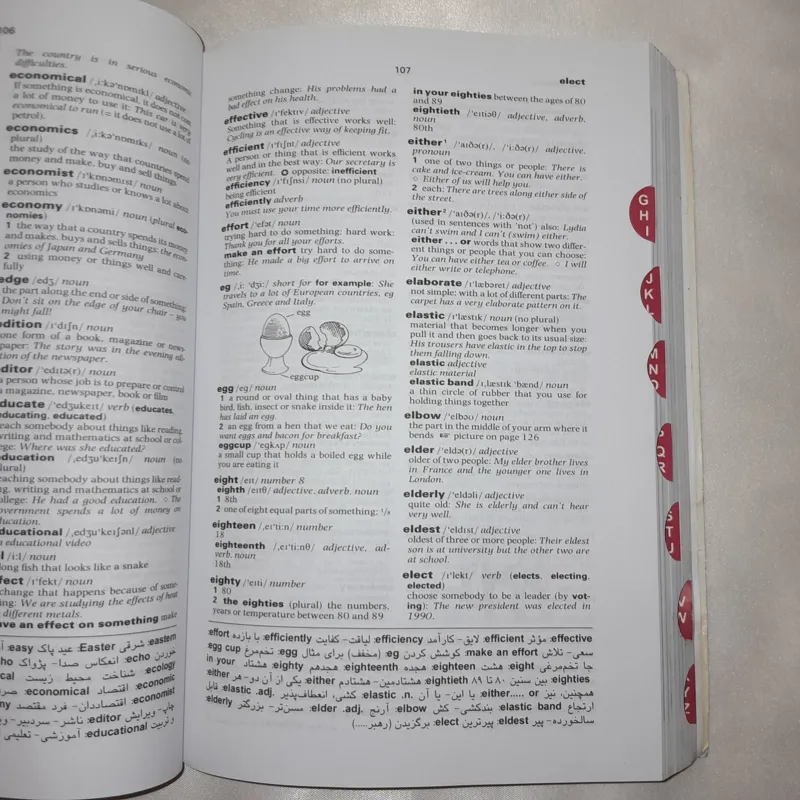 106
The country is in serious economic
difficulties.
economical /ˌiːkəˈnɒmɪkl/ adjective
If something is economical, it does not cost
a lot of money to use it: This car is very
economical to run (= it does not use a lot of
petrol).
economics /ˌiːkəˈnɒmɪks/ noun (no
plural)
the study of the way that countries spend
money and make, buy and sell things
economist /ɪˈkɒnəmɪst/ noun
a person who studies or knows a lot about
economics
economy /ɪˈkɒnəmi/ noun (plural eco-
nomies)
1 the way that a country spends its money
and makes, buys and sells things: the econ-
omies of Japan and Germany
2 using money or things well and care-
fully
edge /edʒ/ noun
the part along the end or side of something:
Don't sit on the edge of your chair – you
might fall!
edition /ɪˈdɪʃn/ noun
one form of a book, magazine or news-
paper: The story was in the evening edi-
tion of the newspaper.
editor /ˈedɪtə(r)/ noun
a person whose job is to prepare or control
a magazine, newspaper, book or film
educate /ˈedʒukeɪt/ verb (educates,
educating, educated)
teach somebody about things like reading,
writing and mathematics at school or col-
lege: Where was she educated?
education /ˌedʒuˈkeɪʃn/ noun (no
plural)
teaching somebody about things like read-
ing, writing and mathematics at school or
college: He had a good education. ◇ The
government spends a lot of money on
education.
educational /ˌedʒuˈkeɪʃənl/ adjective
an educational video
/iːl/ noun
long fish that looks like a snake
effect /ɪˈfekt/ noun
change that happens because of some-
thing: We are studying the effects of heat
different metals.
have an effect on something make
107
elect
something change: His problems had a
bad effect on his health.
effective /ɪˈfektɪv/ adjective
Something that is effective works well:
Cycling is an effective way of keeping fit.
efficient /ɪˈfɪʃnt/ adjective
A person or thing that is efficient works
well and in the best way: Our secretary is
very efficient. ✪ opposite: inefficient
efficiency /ɪˈfɪʃnsi/ noun (no plural)
being efficient
efficiently adverb
You must use your time more efficiently.
effort /ˈefət/ noun
trying hard to do something; hard work:
Thank you for all your efforts.
make an effort try hard to do some-
thing: He made a big effort to arrive on
time.
eg /ˌiː ˈdʒiː/ short for for example: She
travels to a lot of European countries, eg
Spain, Greece and Italy.
egg
eggcup
egg /eg/ noun
1 a round or oval thing that has a baby
bird, fish, insect or snake inside it: The hen
has laid an egg.
2 an egg from a hen that we eat: Do you
want eggs and bacon for breakfast?
eggcup /ˈegkʌp/ noun
a small cup that holds a boiled egg while
you are eating it
eight /eɪt/ number 8
eighth /eɪtθ/ adjective, adverb, noun
1 8th
2 one of eight equal parts of something; ¹/₈
eighteen /ˌeɪˈtiːn/ number
18
eighteenth /ˌeɪˈtiːnθ/ adjective, ad-
verb, noun
18th
eighty /ˈeɪti/ number
1 80
2 the eighties (plural) the numbers,
years or temperature between 80 and 89
in your eighties between the ages of 80
and 89
eightieth /ˈeɪtiəθ/ adjective, adverb,
noun
80th
either¹ /ˈaɪðə(r)/, /ˈiːðə(r)/ adjective,
pronoun
1 one of two things or people: There is
cake and ice-cream. You can have either.
◇ Either of us will help you.
2 each: There are trees along either side of
the street.
either² /ˈaɪðə(r)/, /ˈiːðə(r)/
(used in sentences with 'not') also: Lydia
can't swim and I can't (swim) either.
either . . . or words that show two differ-
ent things or people that you can choose:
You can have either tea or coffee. ◇ I will
either write or telephone.
elaborate /ɪˈlæbərət/ adjective
not simple; with a lot of different parts: The
carpet has a very elaborate pattern on it.
elastic /ɪˈlæstɪk/ noun (no plural)
material that becomes longer when you
pull it and then goes back to its usual size:
His trousers have elastic in the top to stop
them falling down.
elastic adjective
elastic material
elastic band /ɪˌlæstɪk ˈbænd/ noun
a thin circle of rubber that you use for
holding things together
elbow /ˈelbəʊ/ noun
the part in the middle of your arm where it
bends ☞ picture on page 126
elder /ˈeldə(r)/ adjective
older of two people: My elder brother lives
in France and the younger one lives in
London.
elderly /ˈeldəli/ adjective
quite old: She is elderly and can't hear
very well.
eldest /ˈeldɪst/ adjective
oldest of three or more people: Their eldest
son is at university but the other two are
at school.
elect /ɪˈlekt/ verb (elects, electing,
elected)
choose somebody to be a leader (by vot-
ing): The new president was elected in
1990.
effective: مؤثر efficient: لایق- کارآمد efficiency: لیاقت- کفایت efficiently: با بازده effort:
سعی- تلاش make an effort: کوشش کردن eg: (مخفف) برای مثال egg: تخم‌مرغ egg cup:
جا تخم‌مرغی eight: هشت eighteen: هجده eighteenth: هجدهم eighty: هشتاد in your
eighties: بین سنین ۸۰ تا ۸۹ eightieth: هشتادمین- هشتادم either: یکی از آن دو- هر either:
همچنین، نیز either..... or: یا این- یا آن elastic .n.: کشی، انعطاف‌پذیر elastic .adj.: قابل
ارتجاع elastic band: بندکشی- کش elbow: آرنج elder .adj.: مسن‌تر- بزرگتر elderly:
سالخورده- پیر eldest: پیرترین elect: برگزیدن (رهبر.....)
G H I
J K L
M N O
P Q R
S T U